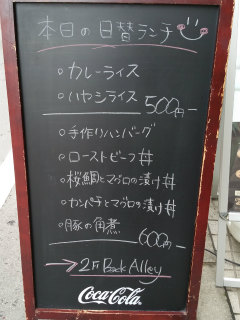 本日の日替ランチ
○カレーライス
○ハヤシライス
500円ー
○手作りハンバーグ
○ローストビーフ丼
○桜鯛とマグロの漬け丼
○カンパチとマグロの漬け丼
○豚の角煮
600円ー
→2F Back Alley
Coca-Cola